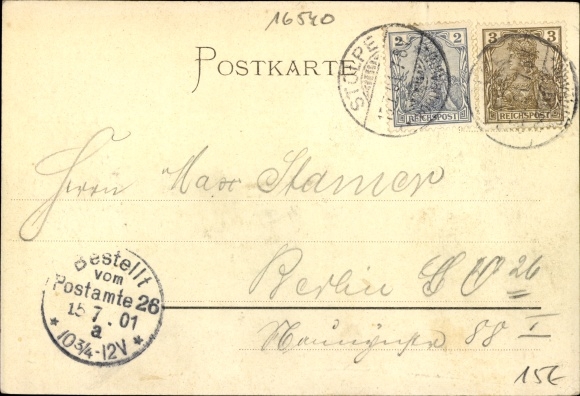 16540
POSTKARTE
STOLP
2
REICHSPOST
3 3
REICHSPOST
Herrn Max Stamer
Berlin S O 26
88 I
Bestellt
vom
Postamte 26
15 7. 01
a
* 10 3/4-12V *
15E